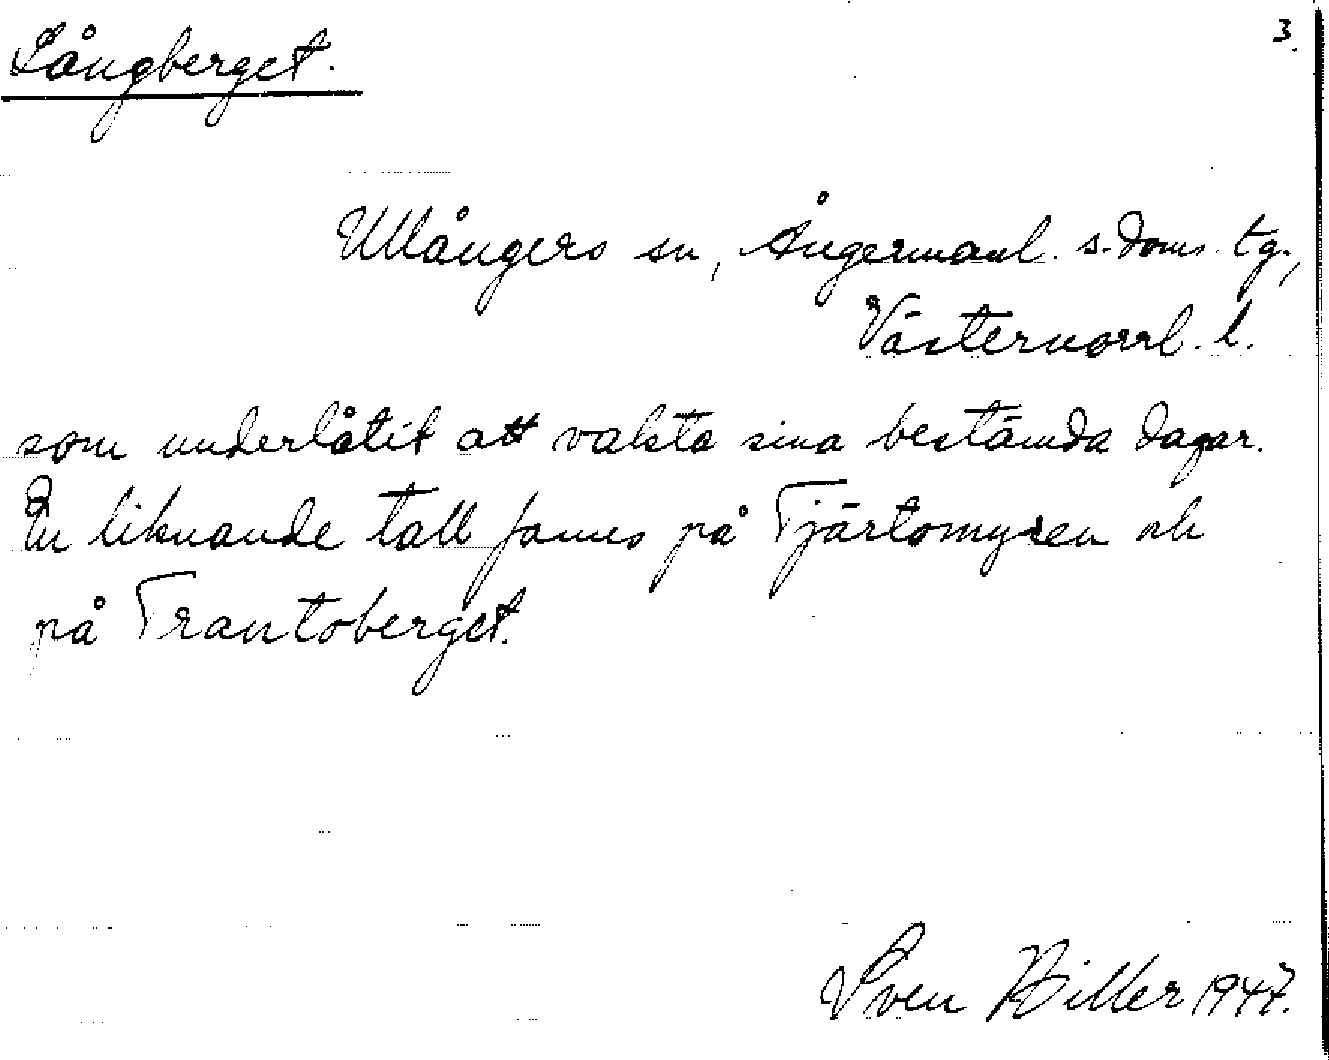 Långberget.
3.
Ullångers sn, Ångermanl. s. doms. tg.,
Västernorrl. l.
som underlåtit att vakta sina bestämda dagar.
En liknande tall fanns på Tjärtomyren och
på Trantoberget.
Sven Hiller 1947.